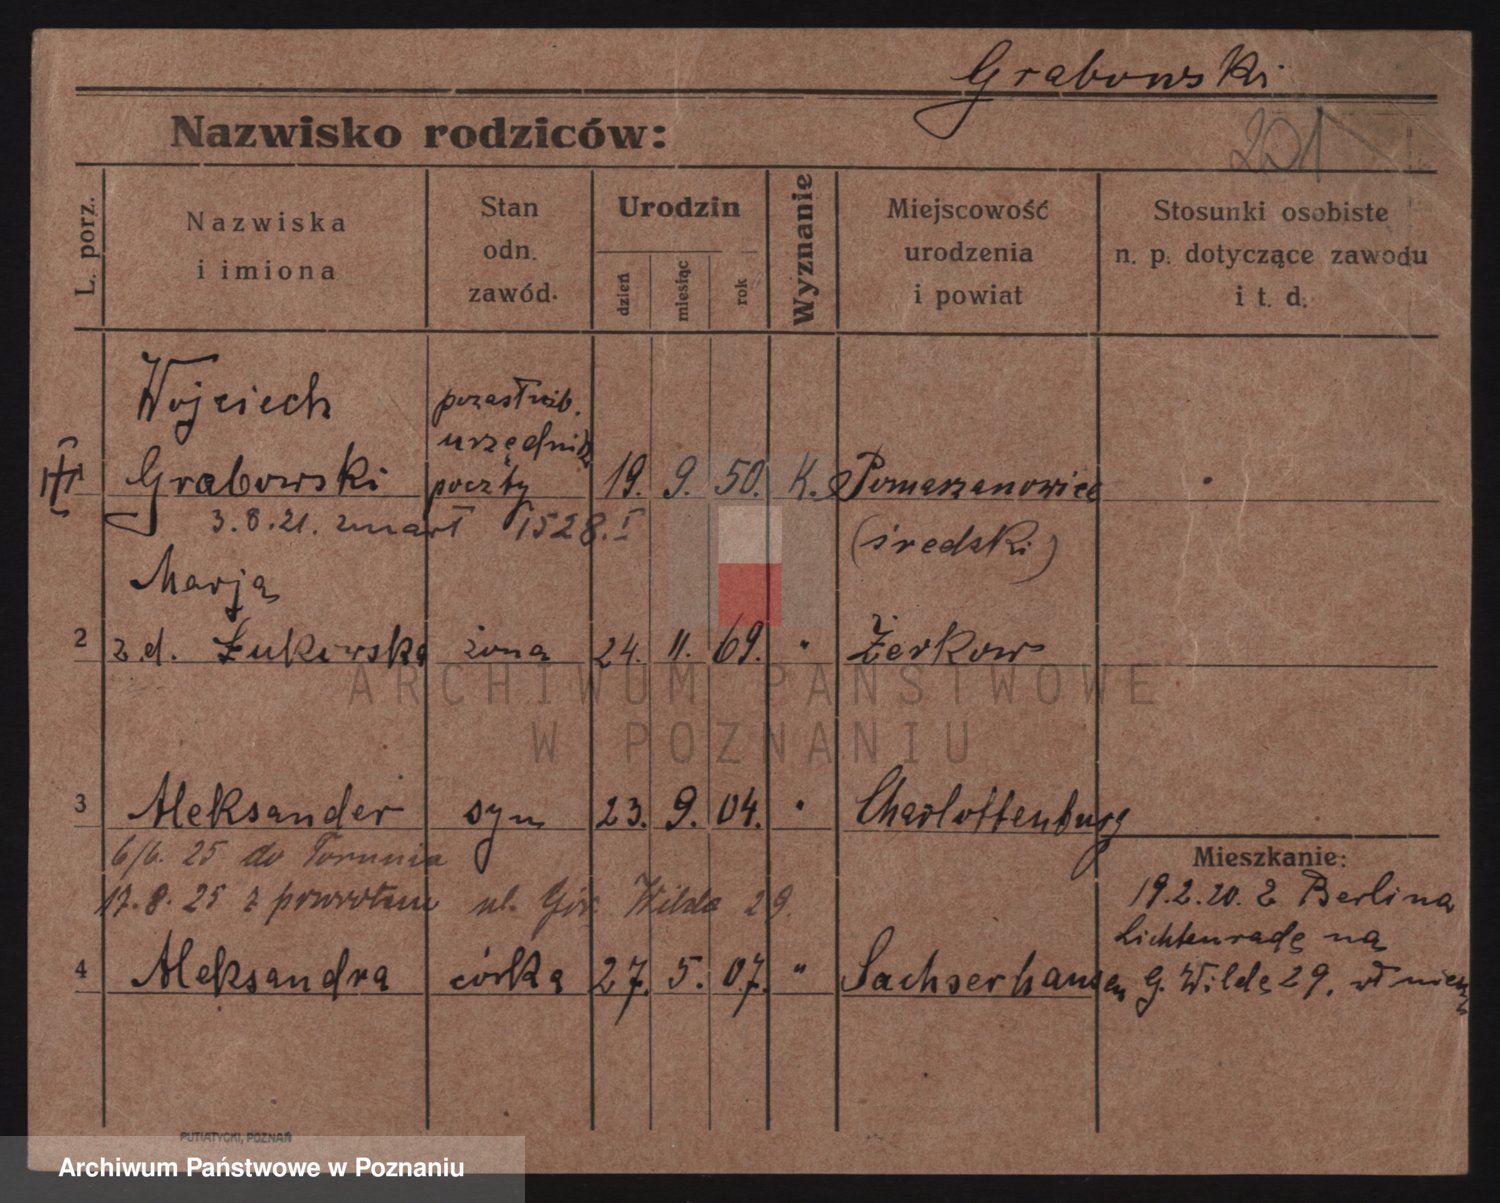 Grabowski
Nazwisko rodziców:
201
L. porz.
Nazwiska
i imiona
Stan
odn.
zawód.
Urodzin
dzień
miesiąc
rok
Wyznanie
Miejscowość
urodzenia
i powiat
Stosunki osobiste
n. p. dotyczące zawodu
i t. d.
Wojciech
Grabowski
pozasłużb.
urzędnik
poczty
19. 9. 50. K. Pomarzanowice
3.8.21. zmarł 1528.I
(średzki)
Marja
2 z.d. Żukowska żona 24. 11. 69. " Żerkow
3 Aleksander syn 23. 9. 04. " Charlottenburg
6/6. 25 do Torunia
17.8.25 z powrotem ul. Gór. Wilda 29.
4 Aleksandra córka 27. 5. 07. " Sachserhausen
Mieszkanie:
19.2.20. z Berlina
Lichtenrade na
G. Wildę 29.
PUTIATYCKI, POZNAŃ
ARCHIWUM PAŃSTWOWE
W POZNANIU
Archiwum Państwowe w Poznaniu